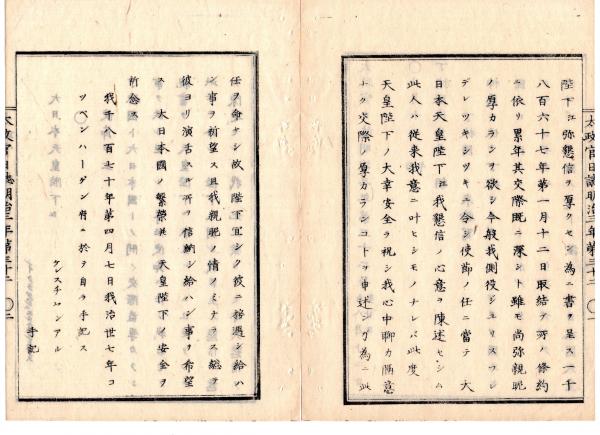 太政官日誌明治三年第三十二
陛下江弥懇信ヲ厚クセン為ニ書ヲ呈ス一千
八百六十七年第一月十二日取結 所ノ條約
ニ依リ累年其交際既ニ深シト雖モ尚弥親睦
ノ厚カランヲ欲シ今般我側役ジュリスフレ
デレツキシツキニ令シ使節ノ任ニ當テ 大
日本天皇陛下江我懇信ノ心意ヲ陳述セシム
此人ハ従来我意ニ叶ヒシモノナレバ此度
天皇陛下ノ大幸安全ヲ祝シ我心中聊カ隔意
ナク交際ノ厚カランコトヲ申述シガ為ニ此
任ヲ命ケシ故 陛下宜シク彼ニ接遇シ給ハ
ン事ヲ希望ス且我親睦ノ情ノミナラス総テ
彼ヨリ演舌スル所ヲ信納シ給ハン事ヲ希望
ス 大日本國ノ繁榮 天皇陛下ノ安全ヲ
所念ス
我千八百七十年第四月七日我治世七年コ
ツペンハーグン府ニ於テ自ラ手記ス
手記
太政官日誌明治三年第三十二